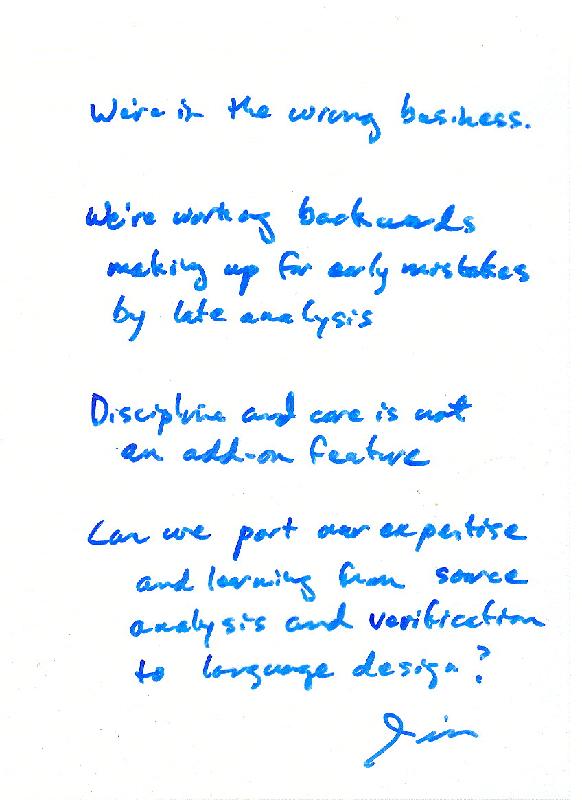 We're in the wrong business.
We're working backwards
making up for early mistakes
by late analysis
Discipline and care is not
an add-on feature
Can we port our expertise
and learning from source
analysis and verification
to language design?
Jim